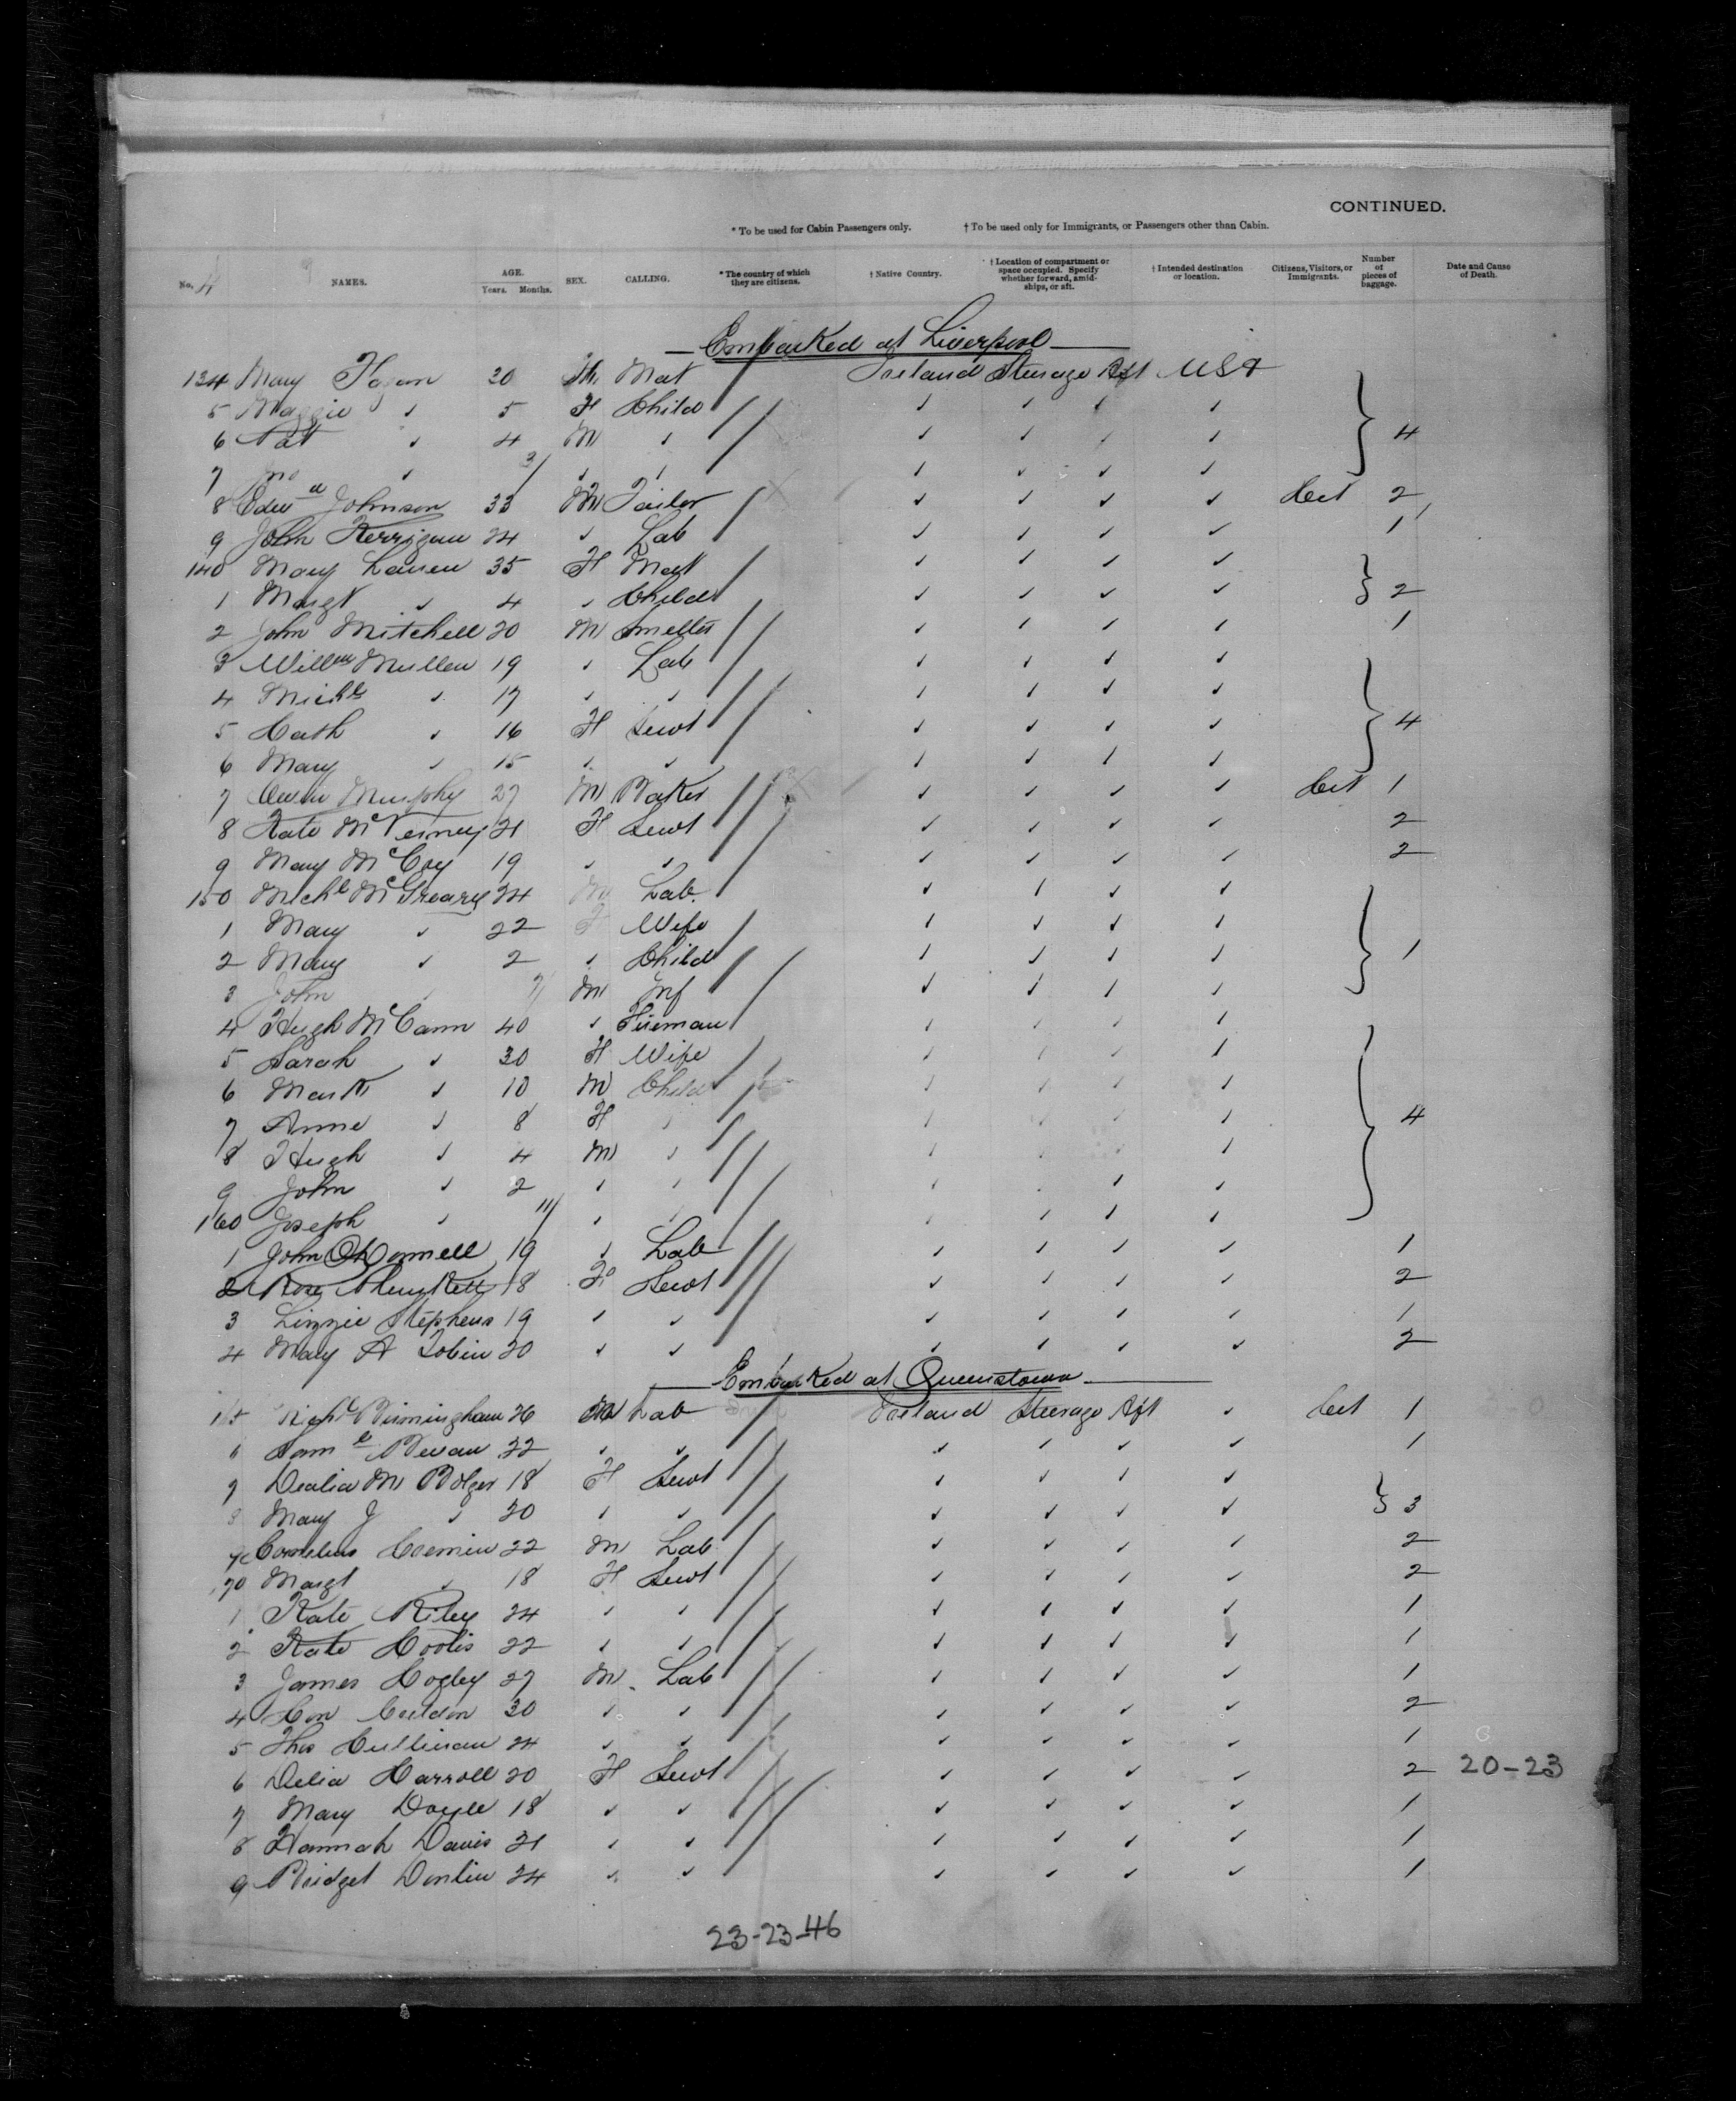 CONTINUED.
* To be used for Cabin Passengers only. † To be used only for Immigrants, or Passengers other than Cabin.
No. 4 NAMES. AGE. Years. Months. SEX. CALLING. * The country of which they are citizens. † Native Country. † Location of compartment or space occupied. Specify whether forward, amidships, or aft. † Intended destination or location. Citizens, Visitors, or Immigrants. Number of pieces of baggage. Date and Cause of Death.
Embarked at Liverpool
134 Mary Fagan 30 Mat Ireland Steerage Aft USA
5 Maggie ✓ 5 F Child ✓ ✓ ✓ ✓
6 Pat ✓ 4 M ✓ ✓ ✓ ✓ ✓ 4
7 Jno ✓ 3/ ✓ ✓ ✓ ✓ ✓ ✓
8 Edwd Johnson 33 M Tailor ✓ ✓ ✓ ✓ Cit 2
9 John Kerrigan 24 ✓ Lab ✓ ✓ ✓ ✓ 1
140 Mary 35 F Mat ✓ ✓ ✓ ✓
1 Margt ✓ 4 ✓ Child ✓ ✓ ✓ ✓ 2
2 John Mitchell 20 M Smelter ✓ ✓ ✓ ✓ 1
3 Willm Mullen 19 ✓ Lab ✓ ✓ ✓ ✓
4 Michl ✓ 17 ✓ ✓ ✓ ✓ ✓ ✓
5 Cath ✓ 16 F Servt ✓ ✓ ✓ ✓ 4
6 Mary ✓ 15 ✓ ✓ ✓ ✓ ✓ ✓
7 Owen Murphy 27 M Baker ✓ ✓ ✓ ✓ Cit 1
8 Kate McVerney 21 F Servt ✓ ✓ ✓ ✓ 2
9 Mary McCoy 19 ✓ ✓ ✓ ✓ ✓ ✓ 2
150 Michl McGreary 24 M Lab. ✓ ✓ ✓ ✓
1 Mary ✓ 22 F Wife ✓ ✓ ✓ ✓
2 Mary ✓ 2 ✓ Child ✓ ✓ ✓ ✓ 1
3 John ✓ M Inf ✓ ✓ ✓ ✓
4 Hugh McCann 40 ✓ Fireman ✓ ✓ ✓ ✓
5 Sarah ✓ 30 F Wife ✓ ✓ ✓ ✓
6 ✓ 10 M Child ✓ ✓ ✓ ✓
7 Anne ✓ 8 F ✓ ✓ ✓ ✓ ✓ 4
8 Hugh ✓ 4 M ✓ ✓ ✓ ✓ ✓
9 John ✓ 2 ✓ ✓ ✓ ✓ ✓ ✓
160 Joseph ✓ 11/ ✓ ✓ ✓ ✓ ✓ ✓
1 John O'Donnell 19 ✓ Lab ✓ ✓ ✓ ✓ 1
2 Rose Plunkett 18 F Servt ✓ ✓ ✓ ✓ 2
3 Lizzie Stephens 19 ✓ ✓ ✓ ✓ ✓ ✓ 1
4 Mary A Tobin 20 ✓ ✓ ✓ ✓ ✓ ✓ 2
Embarked at Queenstown
Birmingham 26 M Lab Ireland Steerage Aft ✓ Cit 1
6 Saml Bevan 22 ✓ ✓ ✓ ✓ ✓ ✓ 1
7 Dealia M Bolger 18 F Servt ✓ ✓ ✓ ✓
8 Mary J ✓ 20 ✓ ✓ ✓ ✓ ✓ ✓ 3
9 Cornelius Cremin 22 M Lab ✓ ✓ ✓ ✓ 2
170 Margt ✓ 18 F Servt ✓ ✓ ✓ ✓ 2
1 Kate Riley 24 ✓ ✓ ✓ ✓ ✓ ✓ 1
2 Kate 22 ✓ ✓ ✓ ✓ ✓ ✓ 1
3 James 27 M Lab ✓ ✓ ✓ ✓ 1
4 Con 30 ✓ ✓ ✓ ✓ ✓ ✓ 2
5 Thos Cullinan 24 ✓ ✓ ✓ ✓ ✓ ✓ 1
6 Delia Carroll 20 F Servt ✓ ✓ ✓ ✓ 2 20-23
7 Mary Doyle 18 ✓ ✓ ✓ ✓ ✓ ✓ 1
8 Hannah Davis 21 ✓ ✓ ✓ ✓ ✓ ✓ 1
9 Bridget Donlin 24 ✓ ✓ ✓ ✓ ✓ ✓ 1
23-23-46